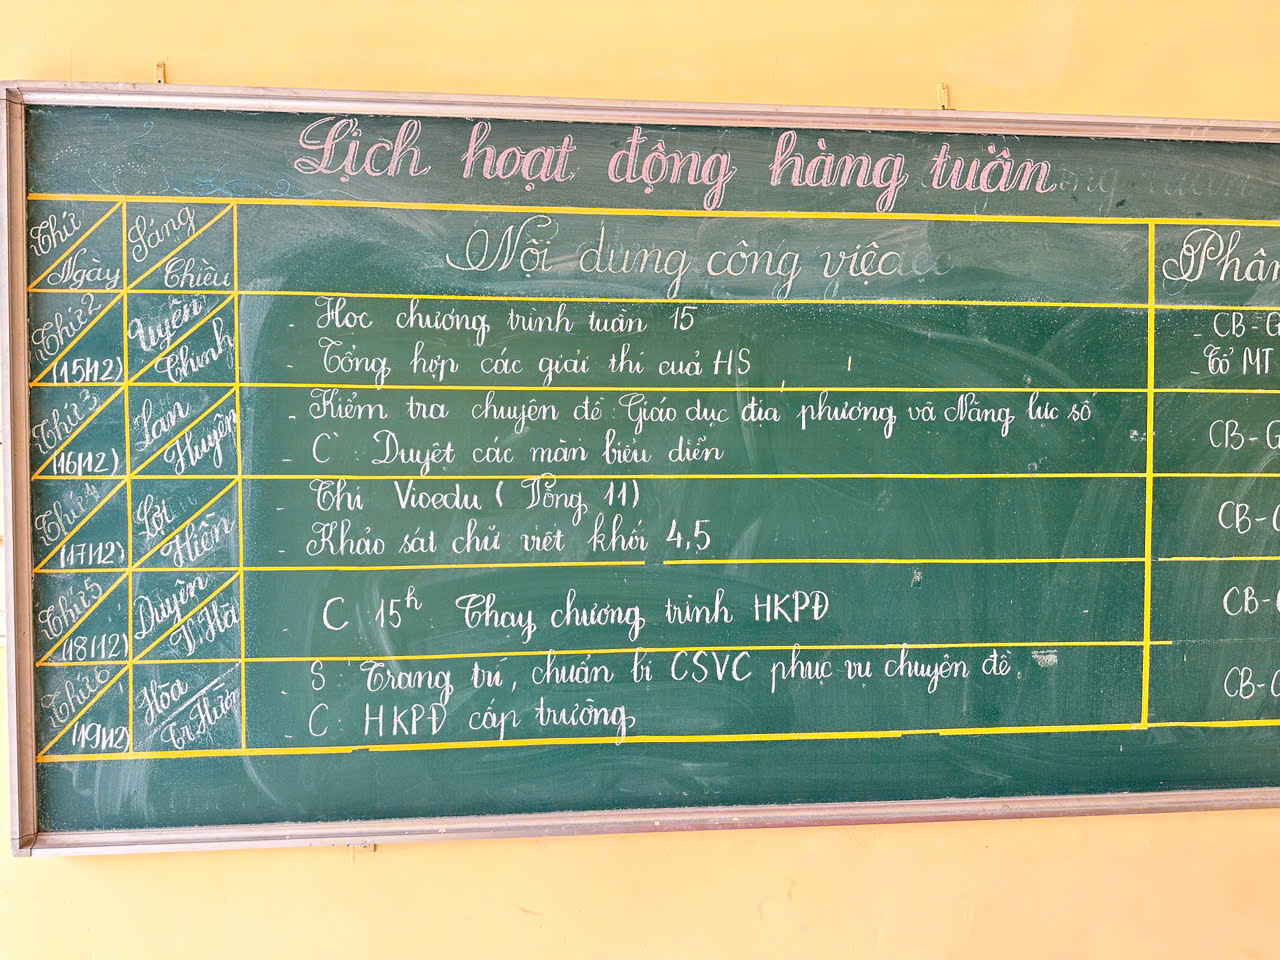 Lịch hoạt động hàng tuần
Thứ Ngày
Sáng Chiều
Nội dung công việc
Phân
Thứ 2 (15/12)
Uyên Chinh
- Học chương trình tuần 15
- Tổng hợp các giải thi của HS
- CB-G
- Tổ MT
Thứ 3 (16/12)
Lan Huyên
- Kiểm tra chuyên đề Giáo dục địa phương và Năng lực số
- C: Duyệt các màn biểu diễn
CB-G
Thứ 4 (17/12)
Lợi Hiền
- Thi Vioedu ( Vòng 11)
- Khảo sát chữ viết khối 4,5
CB-G
Thứ 5 (18/12)
Duyên V.Hà
- C 15h Chạy chương trình HKPĐ
CB-G
Thứ 6 (19/12)
Hòa Tr.Hường
- S: Trang trí, chuẩn bị CSVC phục vụ chuyên đề.
- C: HKPĐ cấp trường
CB-G